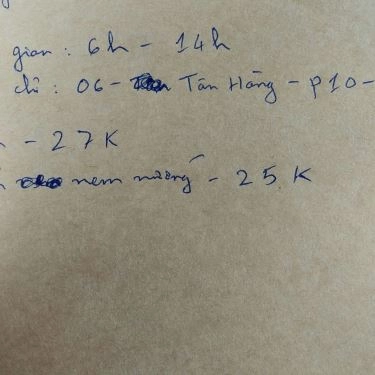 gian : 6h - 14h
chỉ : 06 - Tân Hàng - P10 -
- 27K
nem nướng - 25K